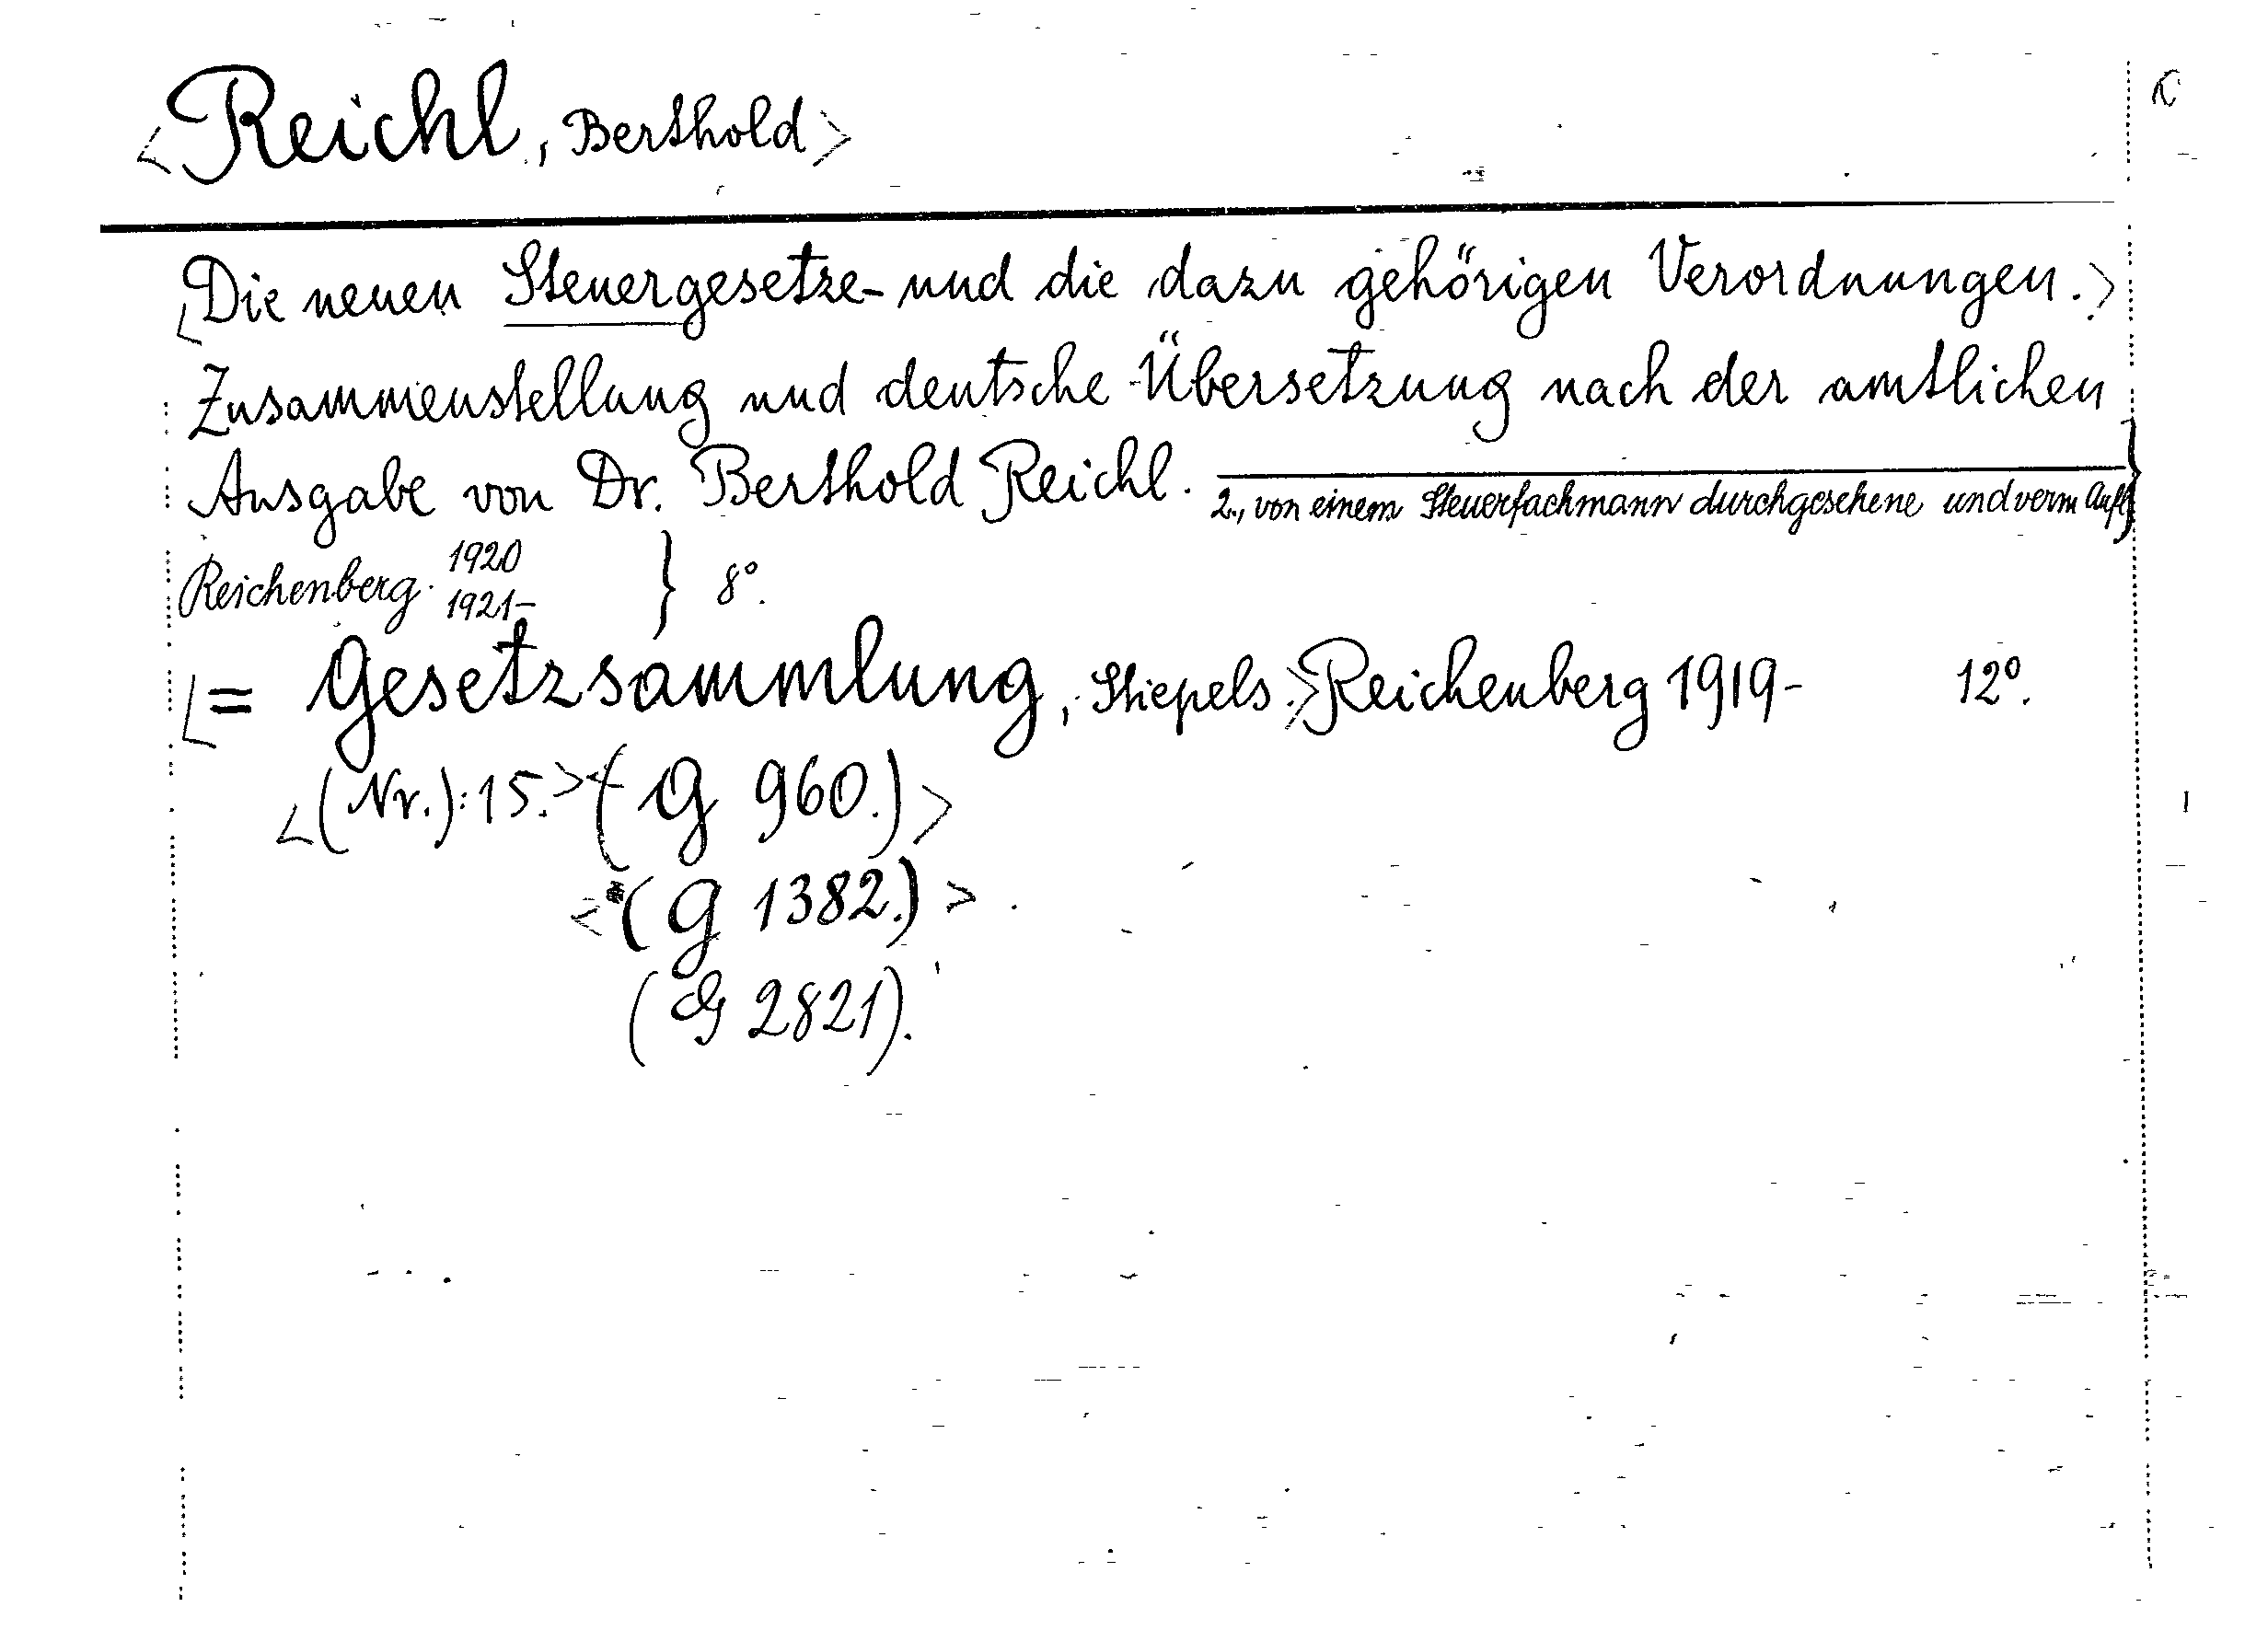 <Reichl, Berthold>
<Die neuen Steuergesetze und die dazu gehörigen Verordnungen.>
Zusammenstellung und deutsche Übersetzung nach der amtlichen
Ausgabe von Dr. Berthold Reichl. 2., von einem Steuerfachmann durchgesehene und verm Aufl }
Reichenberg. 1920 1921- } 8°.
<= Gesetzsammlung, Stiepels.> Reichenberg 1919- 12°.
<(Nr.): 15.> <(G 960.)>
<(G 1382.)>
(G 2821).